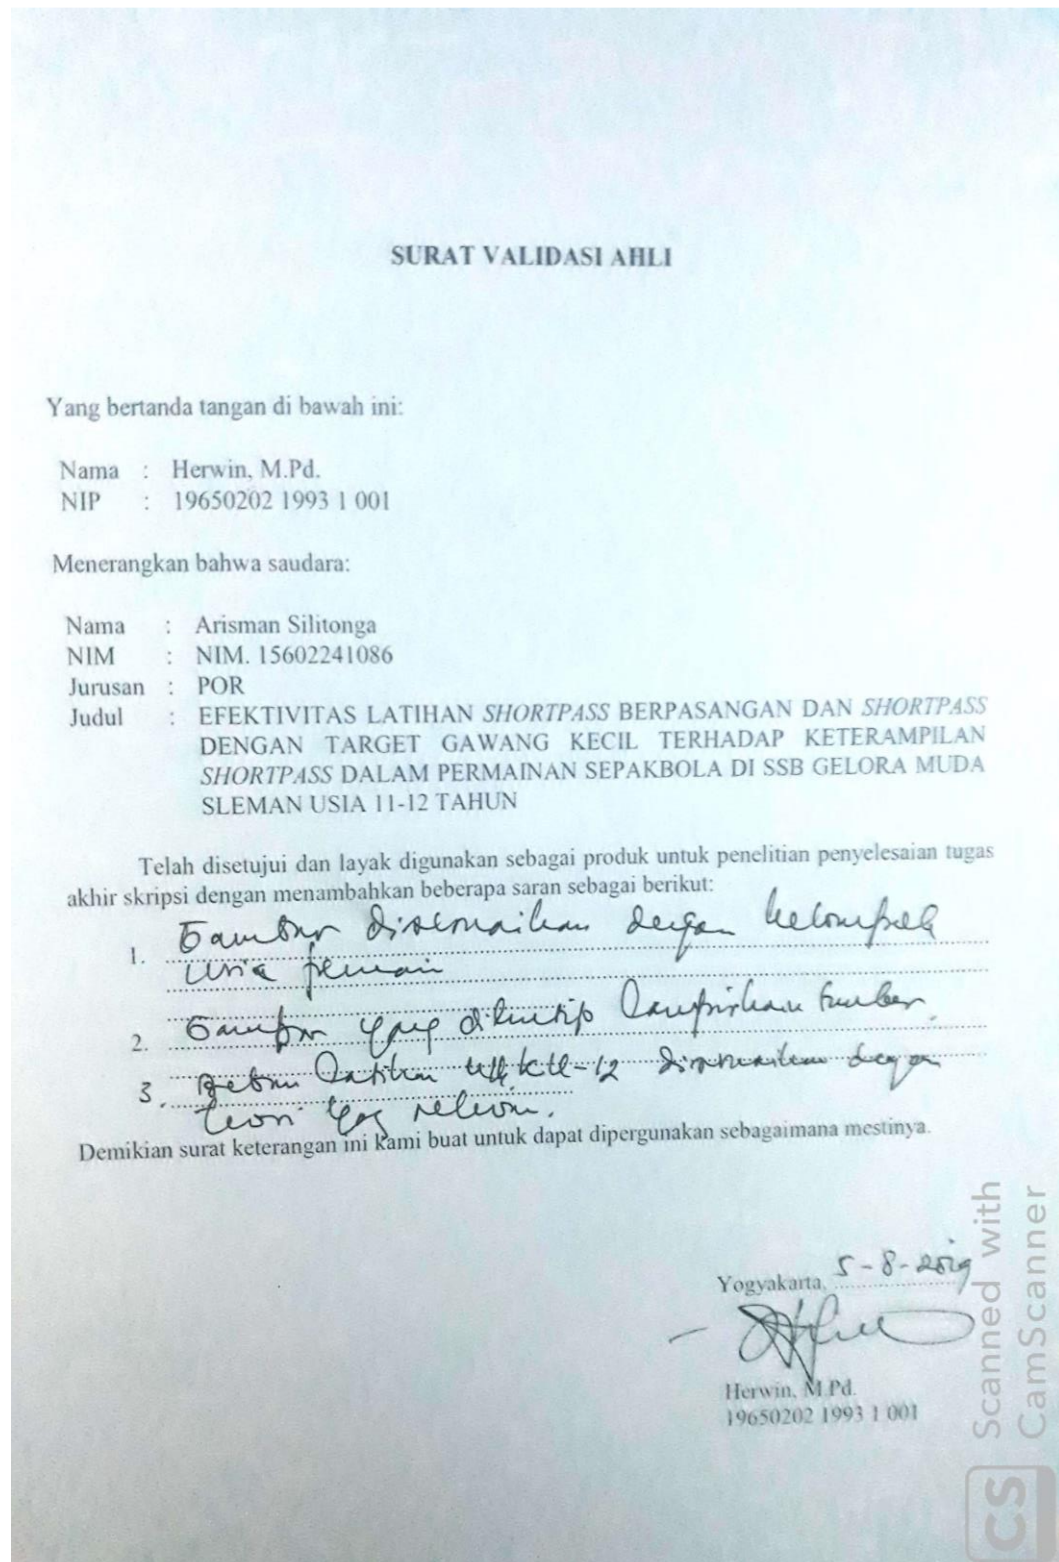 SURAT VALIDASI AHLI
Yang bertanda tangan di bawah ini:
Nama : Herwin, M.Pd.
NIP : 19650202 1993 1 001
Menerangkan bahwa saudara:
Nama : Arisman Silitonga
NIM : NIM. 15602241086
Jurusan : POR
Judul : EFEKTIVITAS LATIHAN SHORTPASS BERPASANGAN DAN SHORTPASS
DENGAN TARGET GAWANG KECIL TERHADAP KETERAMPILAN
SHORTPASS DALAM PERMAINAN SEPAKBOLA DI SSB GELORA MUDA
SLEMAN USIA 11-12 TAHUN
Telah disetujui dan layak digunakan sebagai produk untuk penelitian penyelesaian tugas
akhir skripsi dengan menambahkan beberapa saran sebagai berikut:
1. Gambar disesuaikan dengan kelompok
usia pemain
2. Gambar yang dikutip lampirkan sumber.
3. latihan 12 disesuaikan dengan
teori yg relevan.
Demikian surat keterangan ini kami buat untuk dapat dipergunakan sebagaimana mestinya.
Yogyakarta, 5-8-2019
Herwin, M.Pd.
19650202 1993 1 001
Scanned with
CamScanner
CS